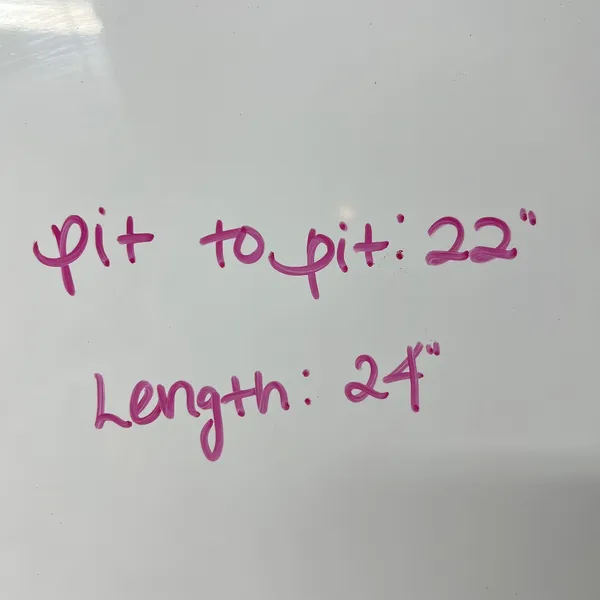 pit to pit: 22"
Length: 24"